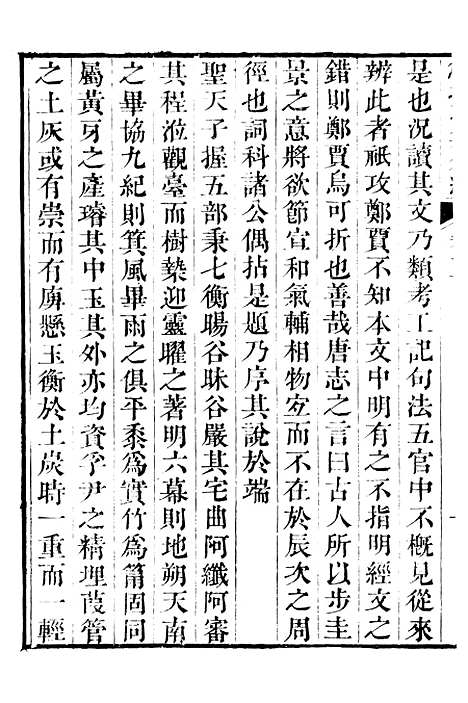 是也況讀其文乃類考工記句法五官中不概見從來
辨此者祇攻鄭賈不知本文中明有之不指明經文之
錯則鄭賈烏可折也善哉唐志之言曰古人所以步圭
景之意將欲節宣和氣輔相物宜而不在於辰次之周
徑也詞科諸公偶拈是題乃序其說於端
聖天子握五部秉七衡暘谷昧谷嚴其宅曲阿纖阿審
其程涖觀臺而樹槷迎靈曜之著明六幕則地朔天南
之畢協九紀則箕風畢雨之俱平黍為實竹為筩固同
屬黃牙之產璿其中玉其外亦均資孚尹之精埋葭管
之土灰或有祟而有庳懸玉衡於土炭時一重而一輕